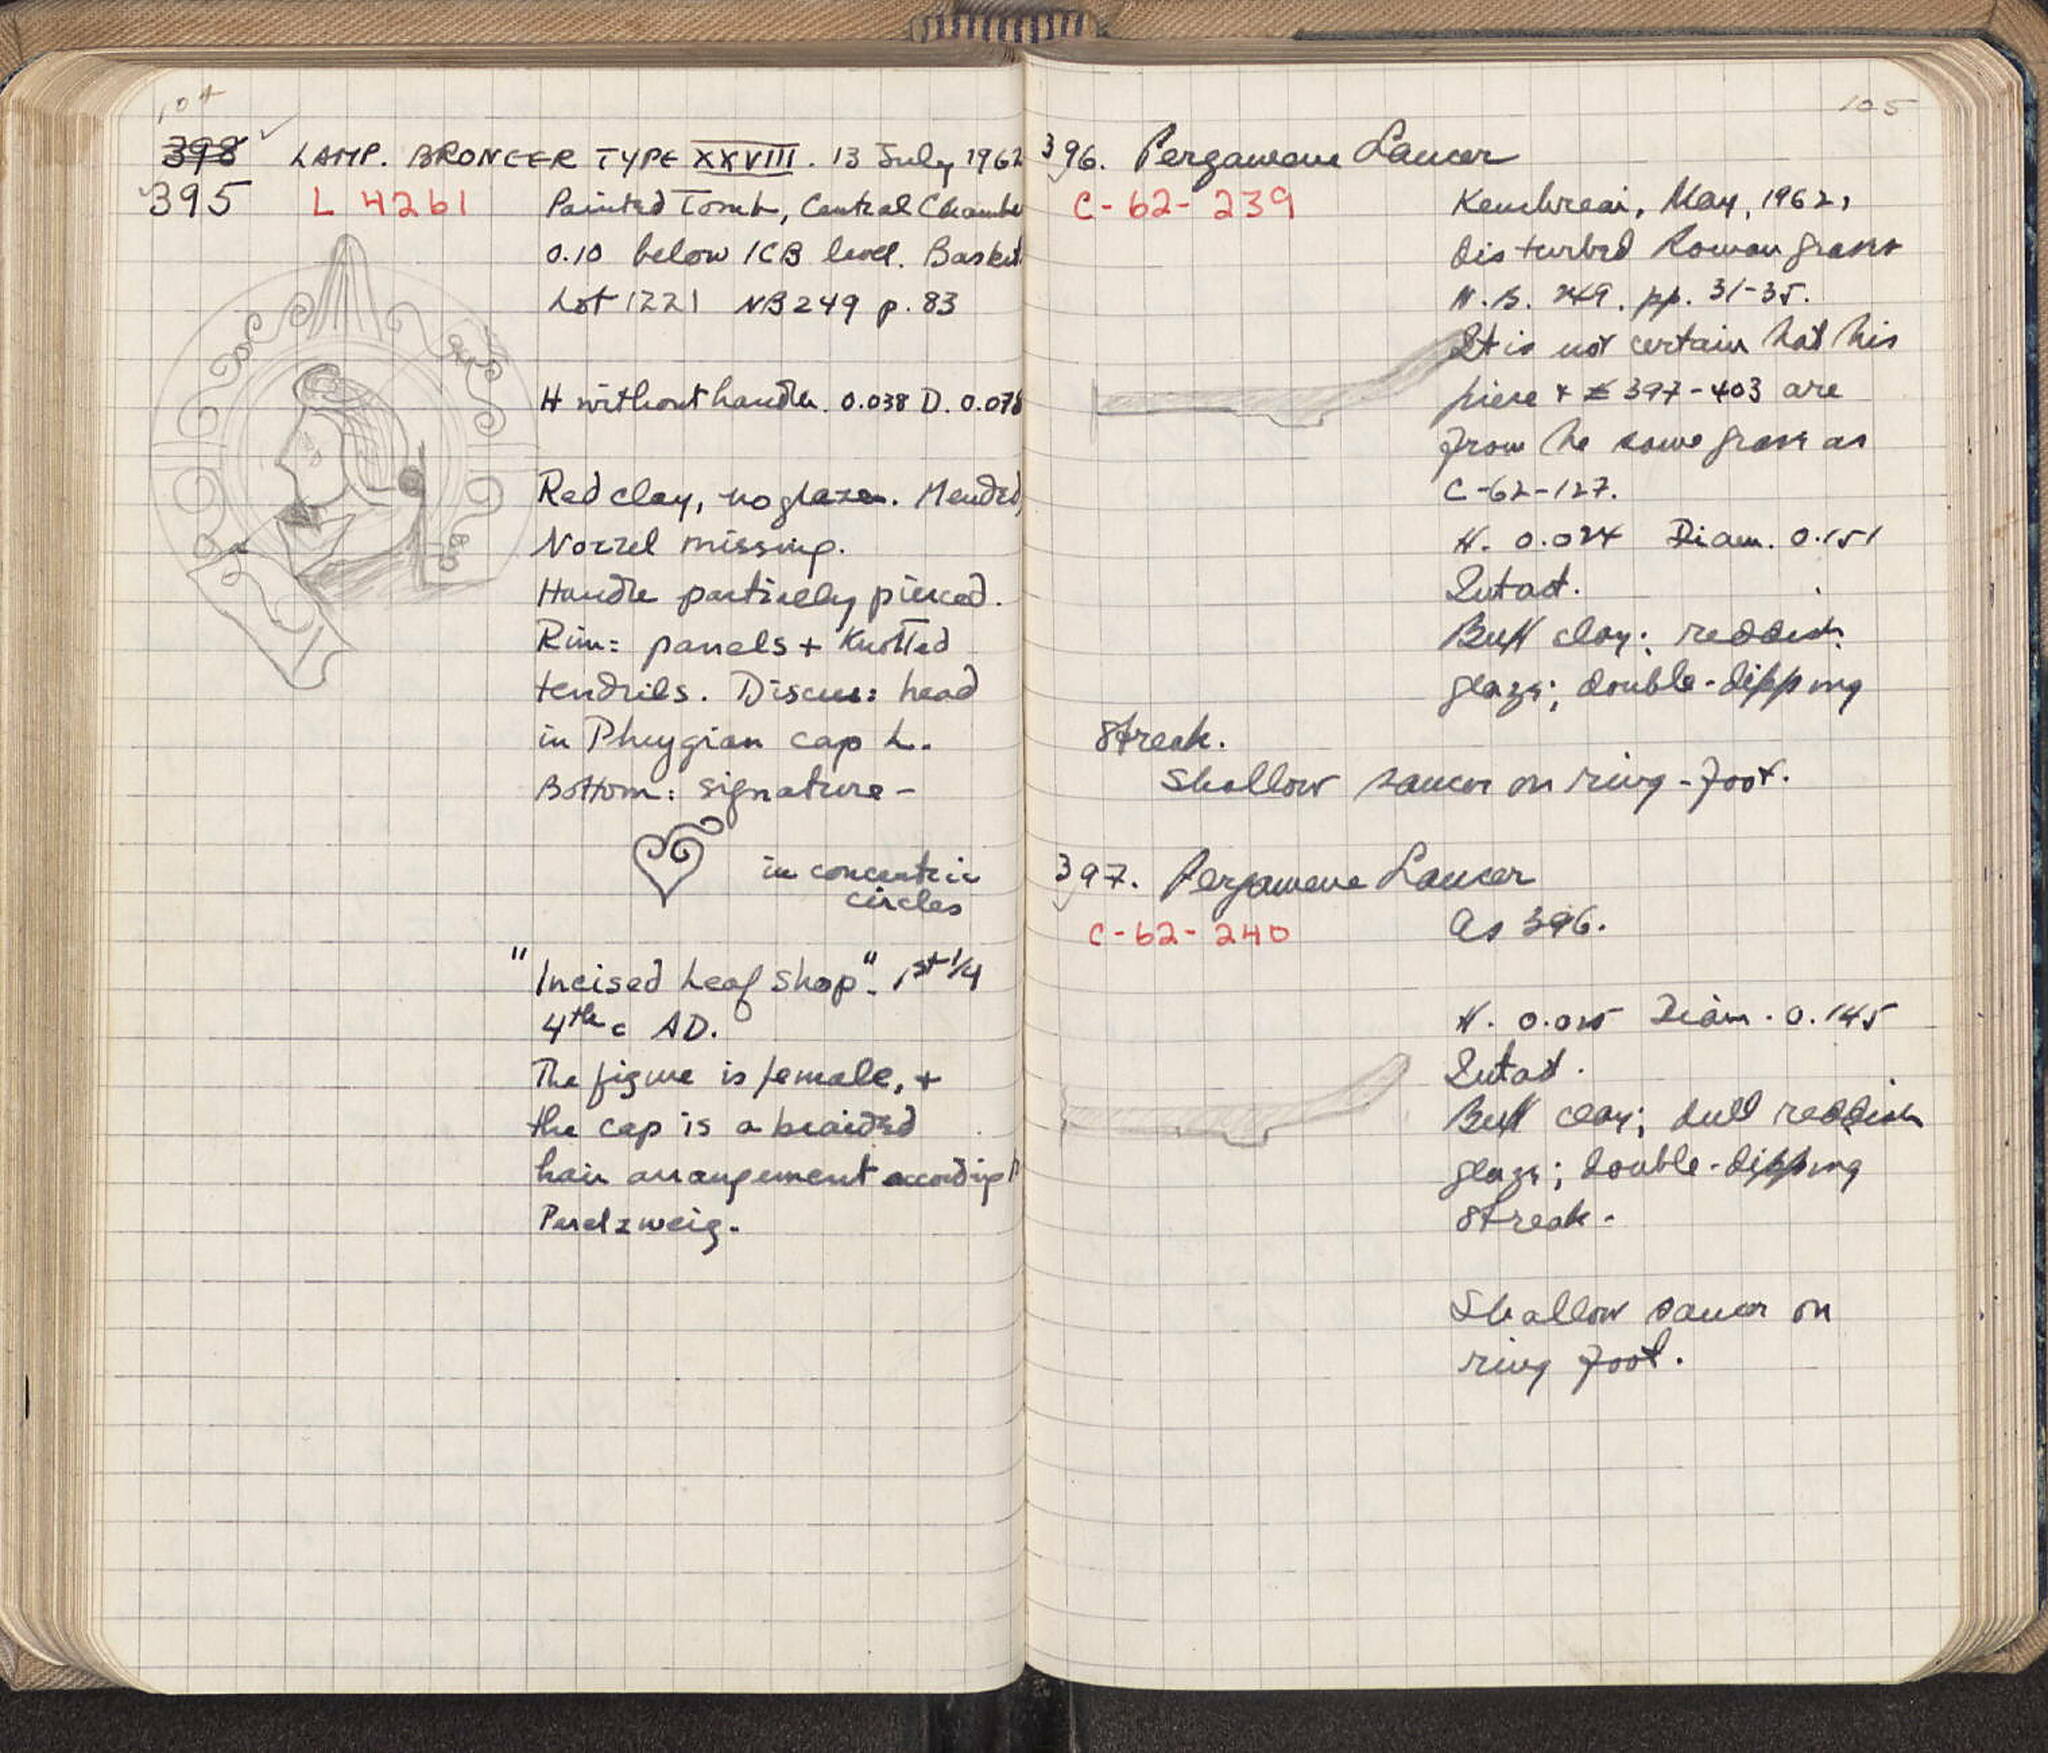 104
398
LAMP. BRONEER TYPE XXVIII. 13 July 1962
395 L 4261
Painted Tomb, Central Chamber
0.10 below ICB level. Basket
Lot 1221 NB 249 p. 83
H without handle. 0.038 D. 0.078
Red clay, no glaze. Mended,
Nozzel missing.
Handle partially pierced.
Rim: panels + Knotted
tendrils. Discus: head
in Phrygian cap L.
Bottom: signature -
in concentric
circles
"Incised Leaf Shop". 1st 1/4
4th c AD.
The figure is female, +
the cap is a braided
hair arrangement according
Perlzweig.
105
396. Pergamene Saucer
C-62-239
Kenchreai, May, 1962,
disturbed Roman grave
N.B. 249. pp. 31-35.
It is not certain that this
piece + 397-403 are
from the same grave as
C-62-127.
H. 0.024 Diam. 0.151
Intact.
Buff clay; reddish
glaze; double-dipping
streak.
Shallow saucer on ring-foot.
397. Pergamene Saucer
C-62-240
As 396.
H. 0.025 Diam. 0.145
Intact.
Buff clay; dull reddish
glaze; double-dipping
streak.
Shallow saucer on
ring foot.